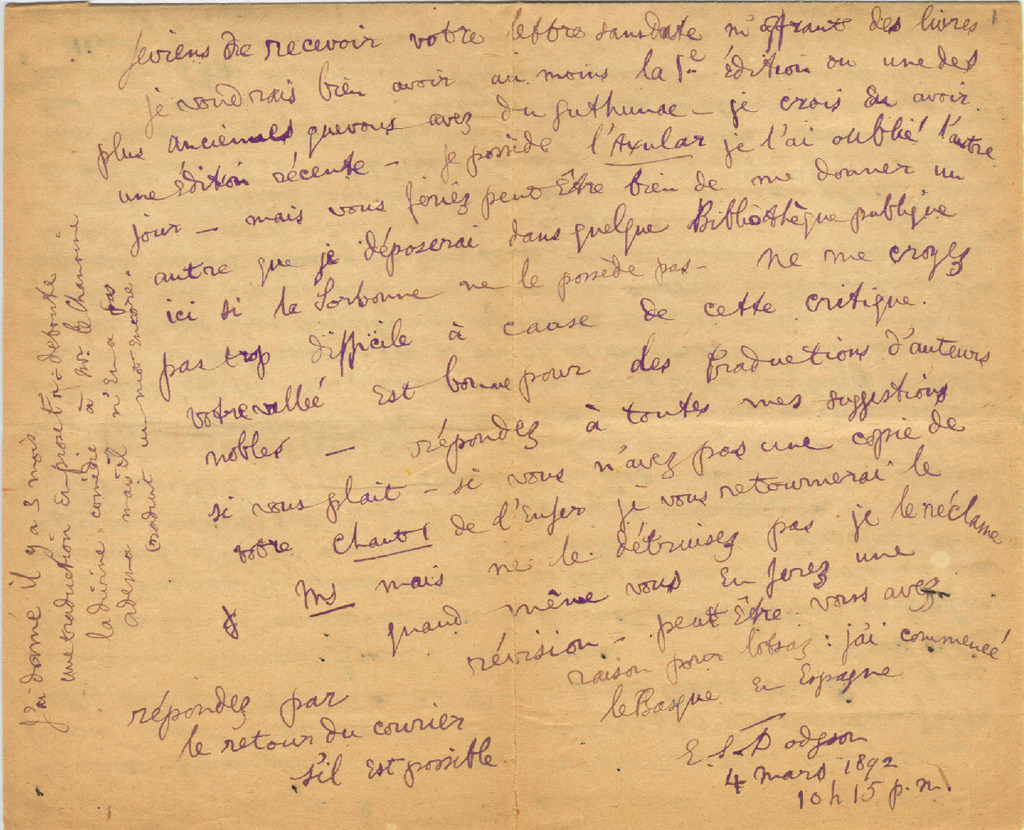 Je viens de recevoir votre lettre sans date m'offrant des livres
je voudrais bien avoir au moins la 1re Édition ou une des
plus anciennes que vous avez du Guthunac — je crois En avoir
une Édition récente — je possède l'Axular je l'ai oublié l'autre
jour — mais vous feriez peut Être bien de me donner un
autre que je déposerai dans quelque Bibliothèque publique
ici si la Sorbonne ne le possède pas — Ne me croyez
pas trop difficile à cause de cette critique.
votre vallée Est bonne pour des traductions d'auteurs
nobles — répondez à toutes mes suggestions
si vous plait — si vous n'avez pas une copie de
votre Chant 1 de l'Enfer je vous retournerai le
MS mais ne le détruisez pas je le réclame
quand même vous En ferez une
révision — peut Être vous avez
raison pour lotsaz : j'ai commencé
le Basque En Espagne
répondez par
le retour du courier
s'il Est possible
E. S. Dodgson
4 mars 1892
10 h 15 p.m.
J'ai donné il y a 3 mois
une traduction En prose de
la divine comédie à Mr. le Chanoine
Adema mais il n'En a pas
traduit un mot Encore.